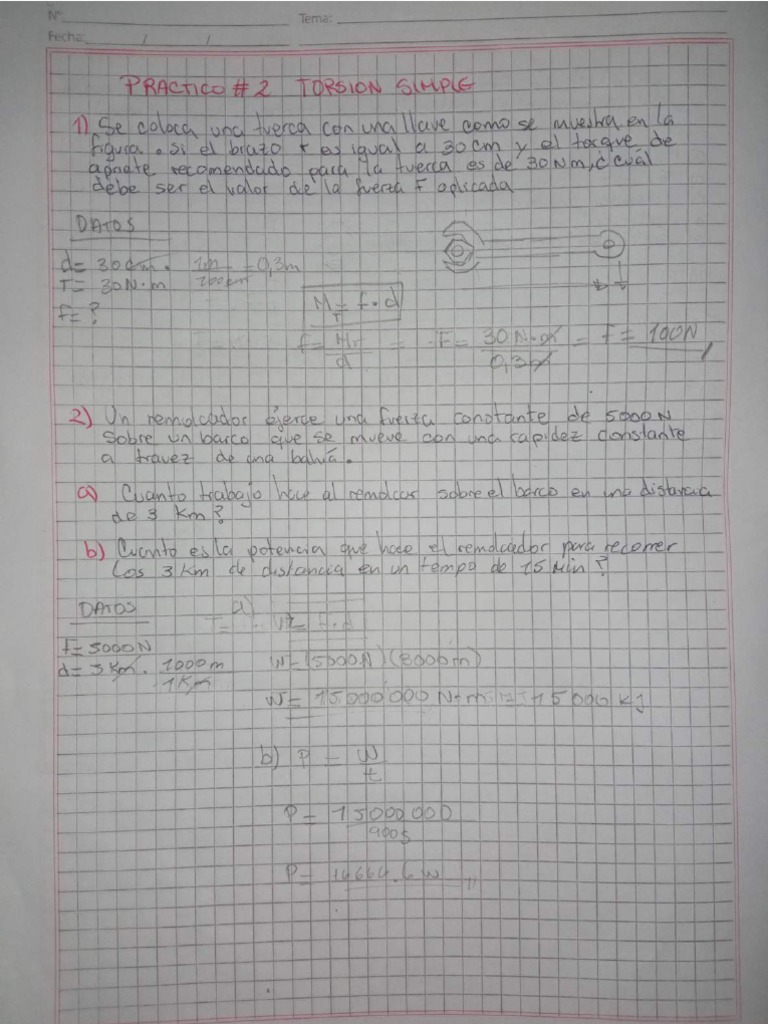 N°
Tema:
Fecha: / /
PRACTICO # 2 TORSION SIMPLE
1) Se coloca una tuerca con una llave como se muestra en la
figura. si el brazo r es igual a 30 cm y el torque de
apriete recomendado para la tuerca es de 30 Nm, ¿cuál
debe ser el valor de la fuerza F aplicada
DATOS
d= 30 cm . 1m / 100 cm = 0,3m
T= 30 N·m
f= ?
M_T = f · d
f = M_T / d = F = 30 N·m / 0,3m = F = 100N
2) Un remolcador ejerce una fuerza constante de 5000 N
Sobre un barco que se mueve con una rapidez constante
a travez de una bahía.
a) Cuanto trabajo hace al remolcar sobre el barco en una distancia
de 3 Km?
b) Cuanto es la potencia que hace el remolcador para recorrer
los 3 Km de distancia en un tempo de 15 Min?
DATOS
a) W= F.d
f= 5000N
d= 3 Km . 1000 m / 1 Km
W= (5000N) (3000m)
W= 15000000 N·m = 15000 KJ
b) P = W / t
P = 15000000 / 900s
P= 16664.6 W